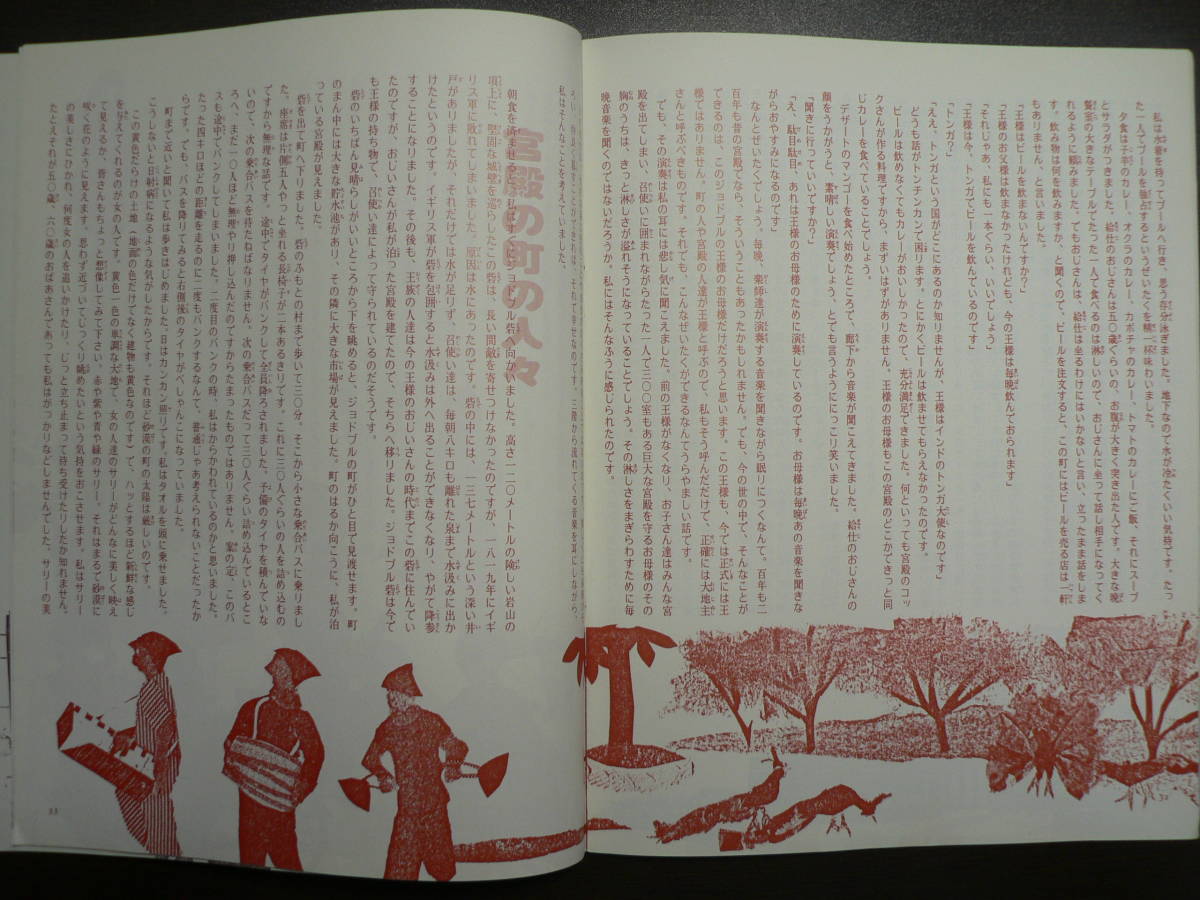 私は水着を持ってプールへ行き、思う存分泳ぎました。地下なので水が冷たくいい気持です。たっ
た一人でプールを独占するというぜいたくを精一杯味わいました。
夕食は羊肉のカレー、オクラのカレー、カボチャのカレー、トマトのカレーにご飯、それにスープ
とサラダがつきました。給仕のおじさんは五〇歳ぐらいの、お腹が大きく突き出た人です。大きな晩
餐室の大きなテーブルでたった一人で食べるのは淋しいので、おじさんに坐って話し相手になってく
れるように頼みました。でもおじさんは、給仕は坐るわけにはいかないと言い、立ったまま話をしま
す。飲み物は何を飲みますか、と聞くので、ビールを注文すると、この町にはビールを売る店は一軒
もありません、と言いました。
「王様はビールを飲まないんですか？」
「王様のお父様は飲まなかったけれども、今の王様は毎晩飲んでおられます」
「それじゃあ、私にも一本ぐらい、いいでしょう」
「王様は今、トンガでビールを飲んでいるのです」
「トンガ？」
「ええ、トンガという国がどこにあるのか知りませんが、王様はインドのトンガ大使なのです」
どうも話がトンチンカンで困ります。とにかくビールは飲ませてもらえなかったのです。
ビールは飲めなくてもカレーがおいしかったので、充分満足できました。何といっても宮殿のコッ
クさんが作る料理ですから、まずいはずがありません。王様のお母様もこの宮殿のどこかできっと同
じカレーを食べていることでしょう。
デザートのマンゴーを食べ始めたところで、廊下から音楽が聞こえてきました。給仕のおじさんの
顔をうかがうと、素晴しい演奏でしょう、とでも言うようににっこり笑いました。
「聞きに行っていいですか？」
「え、駄目駄目、あれは王様のお母様のために演奏しているのです。お母様は毎晩あの音楽を聞きな
がらおやすみになるのです」
なんとぜいたくでしょう。毎晩、楽師達が演奏する音楽を聞きながら眠りにつくなんて。百年も二
百年も昔の宮殿でなら、そういうこともあったかもしれません。でも、今の世の中で、そんなことが
できるのは、このジョドプルの王様のお母様だけだろうと思います。この王様も、今では正式には王
様ではありません。町の人や宮殿の人達が王様と呼ぶので、私もそう呼んだだけで、正確には大地主
さんと呼ぶべきものです。それでも、こんなぜいたくができるなんてうらやましい話です。
でも、その演奏は私の耳には悲し気に聞こえてきました。前の王様が亡くなり、お子さん達はみんな宮
殿を出てしまい、召使いに囲まれながらたった一人で三〇〇室もある巨大な宮殿を守るお母様のその
胸のうちは、きっと淋しさが溢れそうになっていることでしょう。その淋しさをまぎらわすために毎
晩音楽を聞くのではないだろうか。私にはそんなふうに感じられたのです。
私はそんなことを考えていました。
宮殿の町の人々
朝食を済ませると、私はすぐにジョドプル砦へ向かいました。高さ一二〇メートルの険しい岩山の
頂上に、堅固な城壁を巡らしたこの砦は、長い間敵を寄せつけなかったのですが、一八一九年にイギ
リス軍に敗れてしまいました。原因は水にあったのです。砦の中には、一三七メートルという深い井
戸がありましたが、それだけでは水が足りず、召使い達は、毎朝八キロも離れた泉まで水汲みに出か
けたというのです。イギリス軍が砦を包囲すると水汲みは外へ出ることができなくなり、やがて降参
することになりました。その後も、王族の人達は今の王様のおじいさんの時代までこの砦に住んでい
たのですが、おじいさんが私が泊った宮殿を建てたので、そちらへ移りました。ジョドプル砦は今で
も王様の持ち物で、召使い達によって守られているのだそうです。
砦のいちばん見晴らしがいいところから下を眺めると、ジョドプルの町がひと目で見渡せます。町
のまん中には大きな貯水池があり、その隣に大きな市場が見えました。町のはるか向こうに、私が泊
っている宮殿が見えました。
砦を出て町へ下りました。砦のふもとの村まで歩いて三〇分。そこから小さな乗合バスに乗りまし
た。座席は片側五人やっと坐れる長椅子が二本あるきりです。これに三〇人ぐらいの人を詰め込むの
ですから無理な話です。途中でタイヤがパンクして全員降ろされました。予備のタイヤを積んでいな
いので、次の乗合バスを待たねばなりません。次の乗合バスだって三〇人ぐらい詰め込んでいるとこ
ろへ、まだ一〇人ほど無理やり押し込んだのですからたまったものではありません。案の定、このバ
スも途中でパンクしてしまいました。二度目のパンクの時、私はからかわれているのかと思いました。
たった四キロほどの距離を走るのに二度もパンクするなんて、普通じゃあ考えられないことだったか
らです。でも、バスを降りてみると右後のタイヤがぺしゃんこになっていました。
町まで近いと聞いて私は歩きはじめました。日はカンカン照りです。私はタオルを頭に乗せました。
こうしないと日射病になるような気がしたからです。それほど砂漠の町の太陽は厳しいのです。
この黄色だらけの土地（地面の色だけでなく建物も黄色なのです）で、ハッとするほど新鮮な感じ
を与えてくれるのが女の人です。黄色一色の単調な大地で、女の人達のサリーがどんなに美しく映え
て見えるか、皆さんもちょっと想像してみて下さい。赤や紫や青や緑のサリー。それはまるで砂漠に
咲く花のように見えます。思わず近づいてじっくり眺めたいという気持をおこさせます。私はサリー
の美しさにひかれ、何度女の人を追いかけたり、じっと立ち止まって待ち受けたりしたか知れません。
たとえそれが五〇歳、六〇歳のおばあさんであっても私はがっかりなどしませんでした。サリーの美